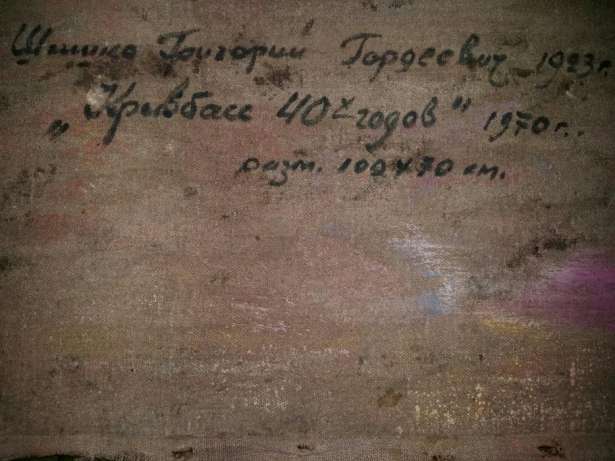 Шишко Григорий Гордеевич 1923г.
„Кривбасс 40х годов" 1970г..
разм. 100х70 см.